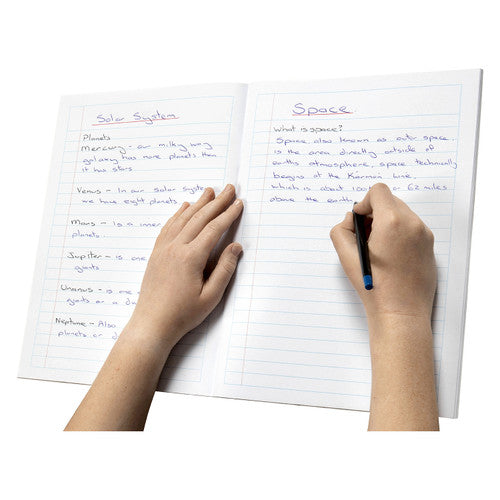 Solar System
Planets
Mercury - our milky way
galaxy has more planets then
it has stars
Venus - In our solar system
we have eight planets
Mars - is a inner
planets.
Jupiter - is one
giants
Uranus - is one
giants or a
Neptune - Also
planets or
Space
What is space?
Space, also known as outer space,
is the area directly outside of
earths atmosphere, space technically
begins at the Kármán line.
which is about 100 or 62 miles
above the earth